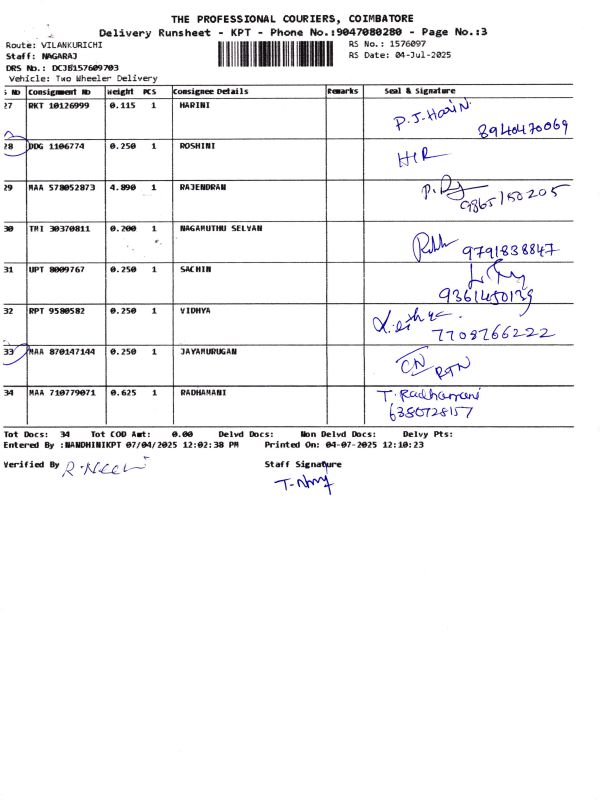 THE PROFESSIONAL COURIERS, COIMBATORE
Delivery Runsheet - KPT - Phone No.:9047080280 - Page No.:3
Route: VILANKURICHI RS No.: 1576097
Staff: NAGARAJ RS Date: 04-Jul-2025
DRS No.: DCJB157609703
Vehicle: Two Wheeler Delivery
S No Consignment No Weight PCS Consignee Details Remarks Seal & Signature
27 RKT 10126999 0.115 1 HARINI P.J.Harin
8940470069
28 DDG 1106774 0.250 1 ROSHINI
29 MAA 578052873 4.890 1 RAJENDRAN
9865150205
30 TRI 30370811 0.200 1 NAGAMUTHU SELVAN
9791838847
31 UPT 8009767 0.250 1 SACHIN
9361450139
32 RPT 9580582 0.250 1 VIDHYA
7708766222
33 MAA 870147144 0.250 1 JAYAMURUGAN CN
RTN
34 MAA 710779071 0.625 1 RADHAMANI T. Radhamani
6380728157
Tot Docs: 34 Tot COD Amt: 0.00 Delvd Docs: Non Delvd Docs: Delvy Pts:
Entered By :NANDHINIKPT 07/04/2025 12:02:38 PM Printed On: 04-07-2025 12:10:23
Verified By Staff Signature